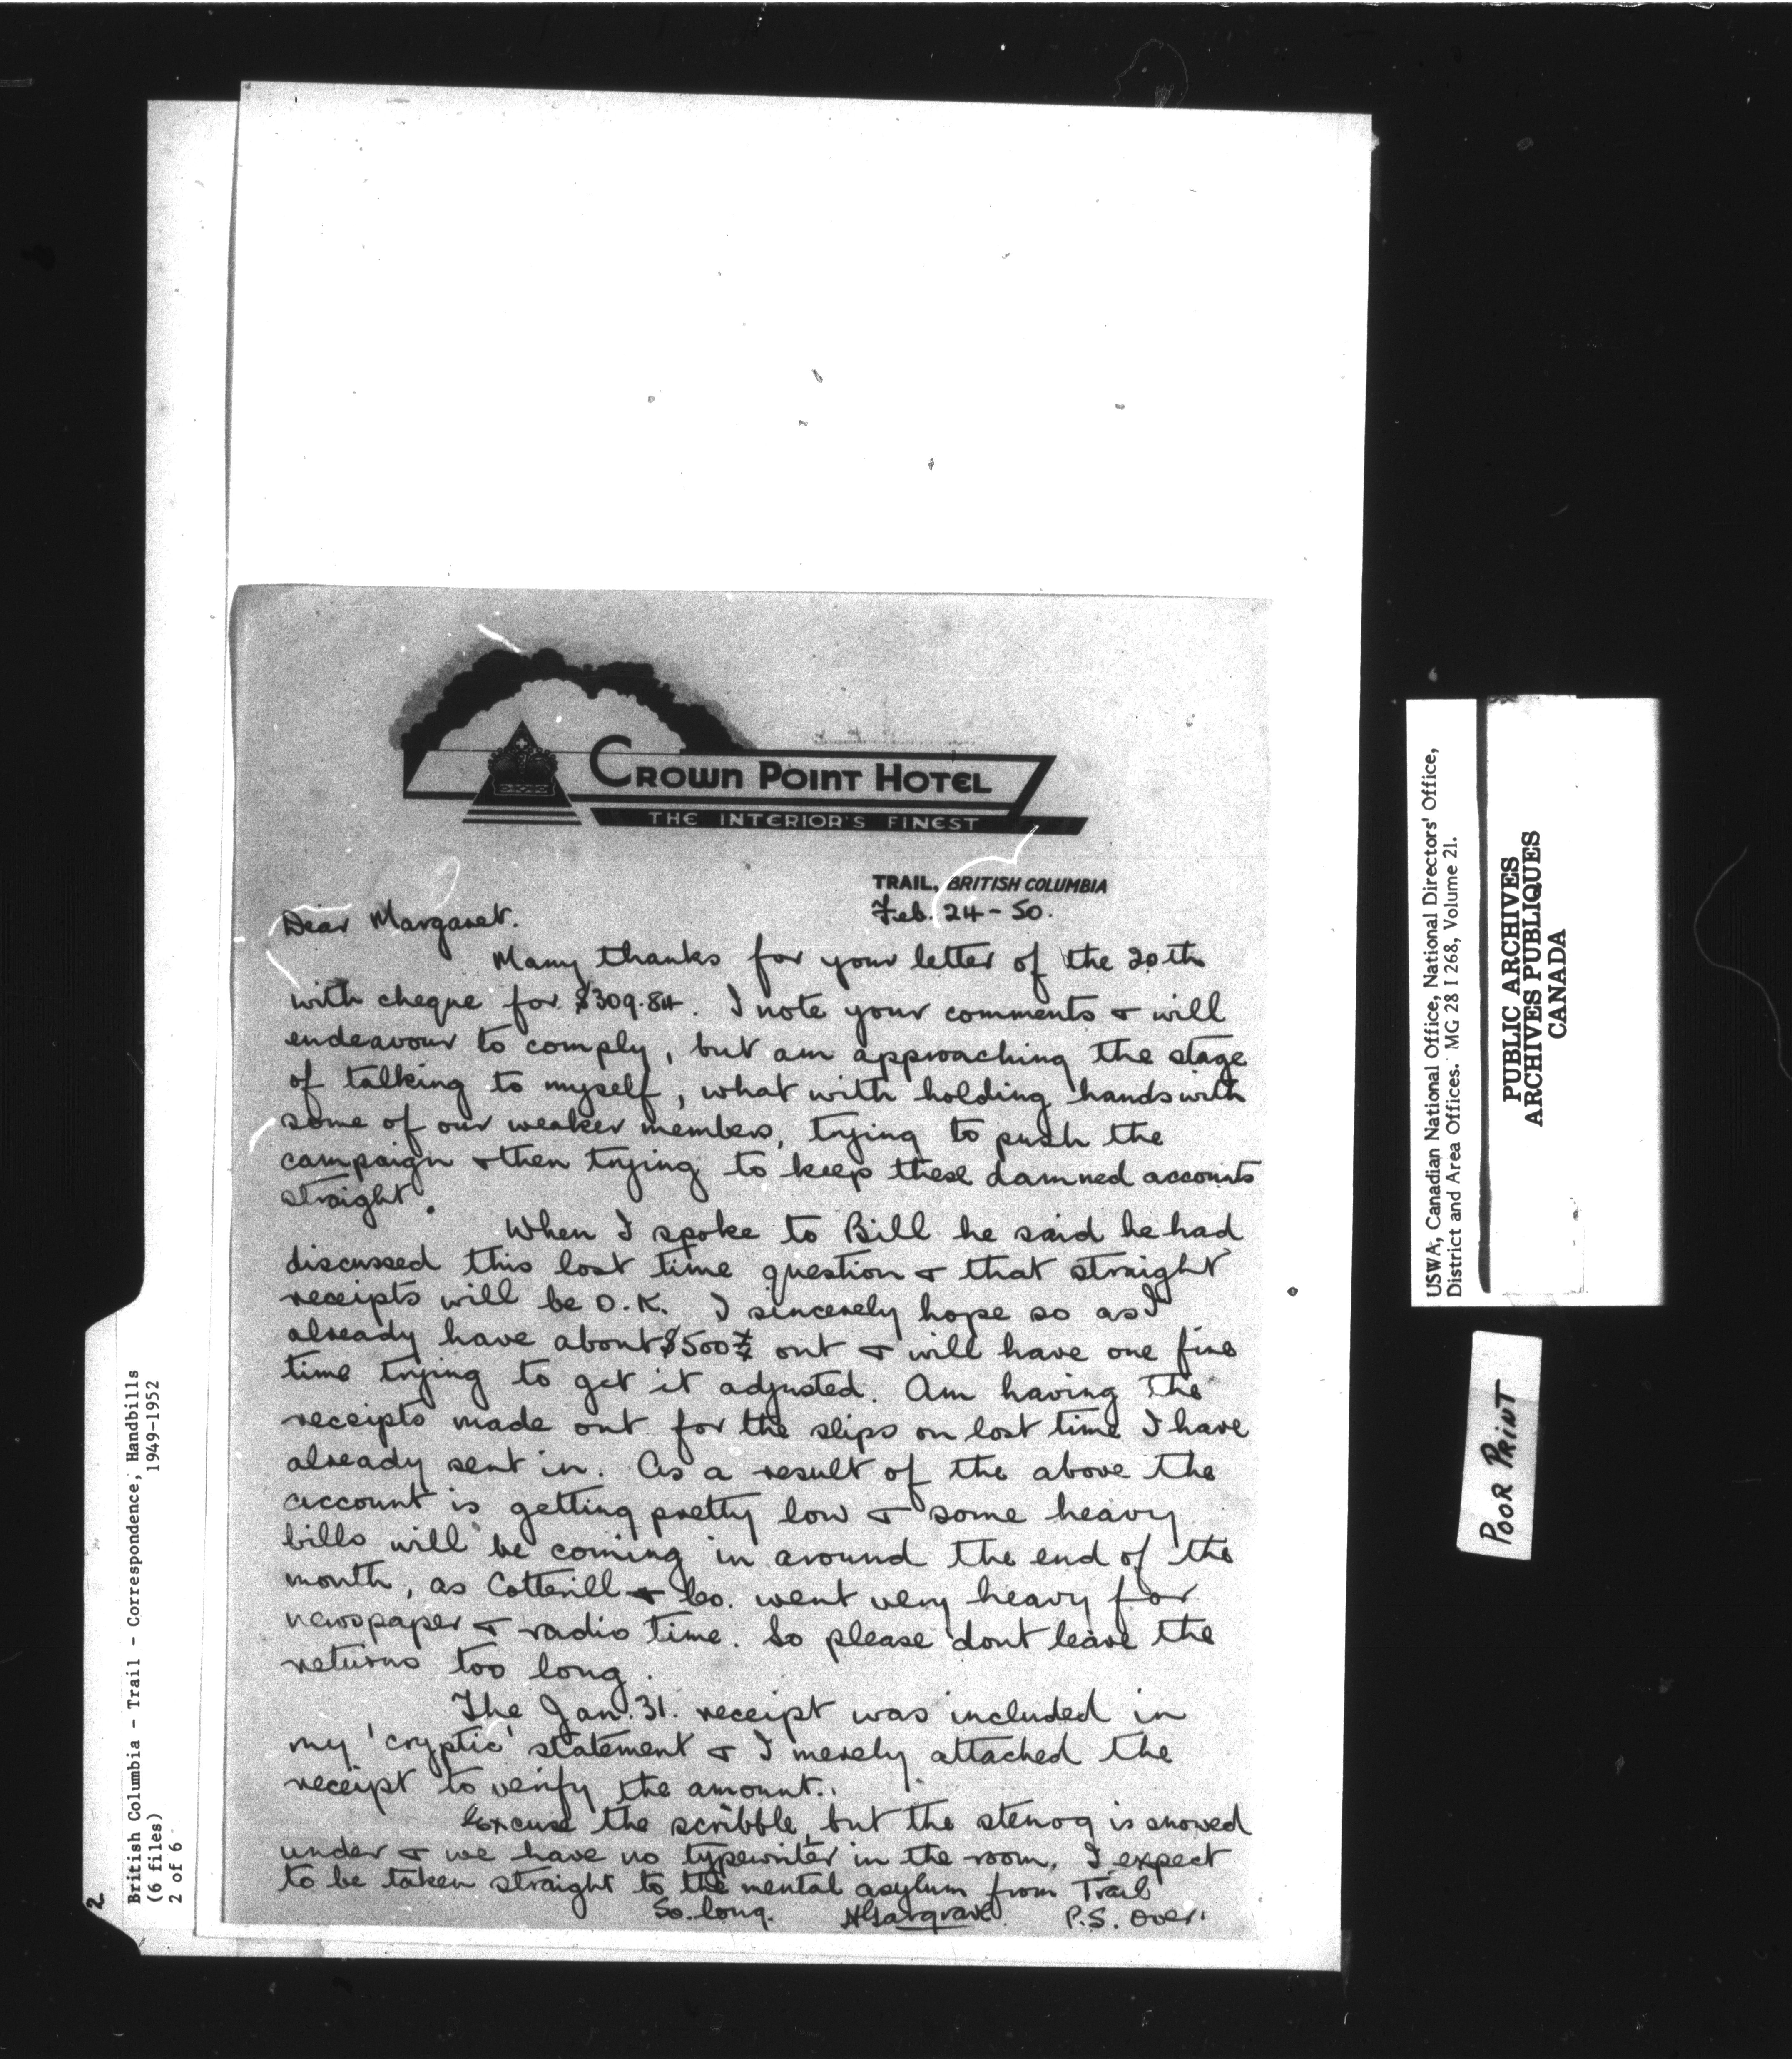 CROWN POINT HOTEL
THE INTERIOR'S FINEST
TRAIL, BRITISH COLUMBIA
Feb. 24-50.
Dear Margaret.
Many thanks for your letter of the 20th
with cheque for $309.84. I note your comments & will
endeavour to comply, but am approaching the stage
of talking to myself, what with holding hands with
some of our weaker members, trying to push the
campaign & then trying to keep these damned accounts
straight.
When I spoke to Bill he said he had
discussed this lost time question & that straight
receipts will be O.K. I sincerely hope so as I
already have about $500 out & will have one fine
time trying to get it adjusted. Am having the
receipts made out for the slips on lost time I have
already sent in. As a result of the above the
account is getting pretty low & some heavy
bills will be coming in around the end of the
month, as Cotterill & Co. went very heavy for
newspaper & radio time. So please dont leave the
returns too long.
The Jan. 31. receipt was included in
my 'cryptic' statement & I merely attached the
receipt to verify the amount.
Excuse the scribble, but the stenog is snowed
under & we have no typewriter in the room. I expect
to be taken straight to the mental asylum from Trail
So long. Hargrave. P.S. Over.
2
British Columbia - Trail - Correspondence, Handbills
(6 files) 1949-1952
2 of 6
USWA, Canadian National Office, National Directors' Office,
District and Area Offices. MG 28 I 268, Volume 21.
PUBLIC ARCHIVES
ARCHIVES PUBLIQUES
CANADA
POOR PRINT